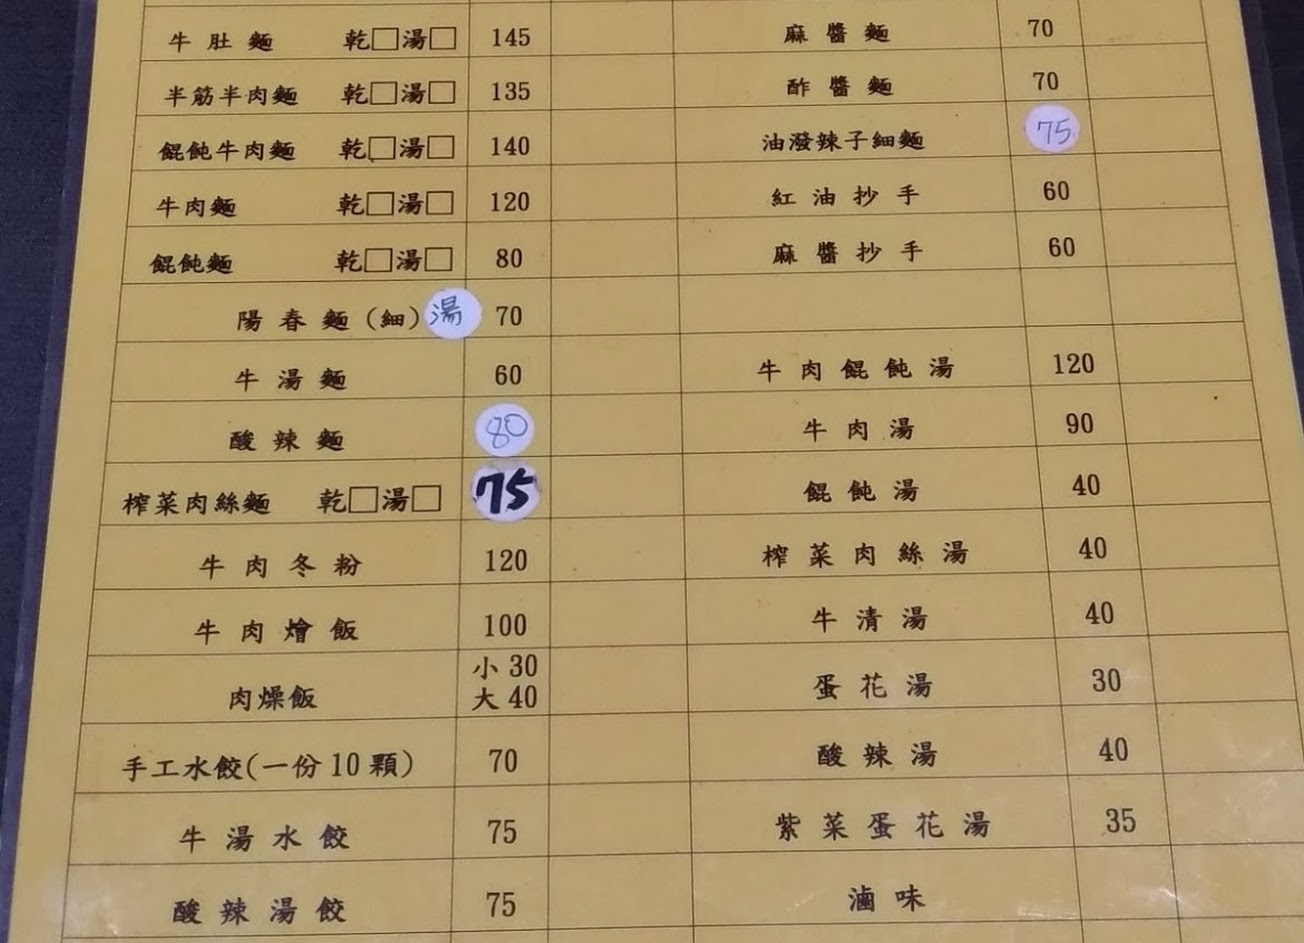 牛肚麵 乾□湯□ 145
半筋半肉麵 乾□湯□ 135
餛飩牛肉麵 乾□湯□ 140
牛肉麵 乾□湯□ 120
餛飩麵 乾□湯□ 80
陽春麵(細)湯 70
牛湯麵 60
酸辣麵 80
榨菜肉絲麵 乾□湯□ 75
牛肉冬粉 120
牛肉燴飯 100
肉燥飯 小30 大40
手工水餃(一份10顆) 70
牛湯水餃 75
酸辣湯餃 75
麻醬麵 70
酢醬麵 70
油潑辣子細麵 75
紅油抄手 60
麻醬抄手 60
牛肉餛飩湯 120
牛肉湯 90
餛飩湯 40
榨菜肉絲湯 40
牛清湯 40
蛋花湯 30
酸辣湯 40
紫菜蛋花湯 35
滷味